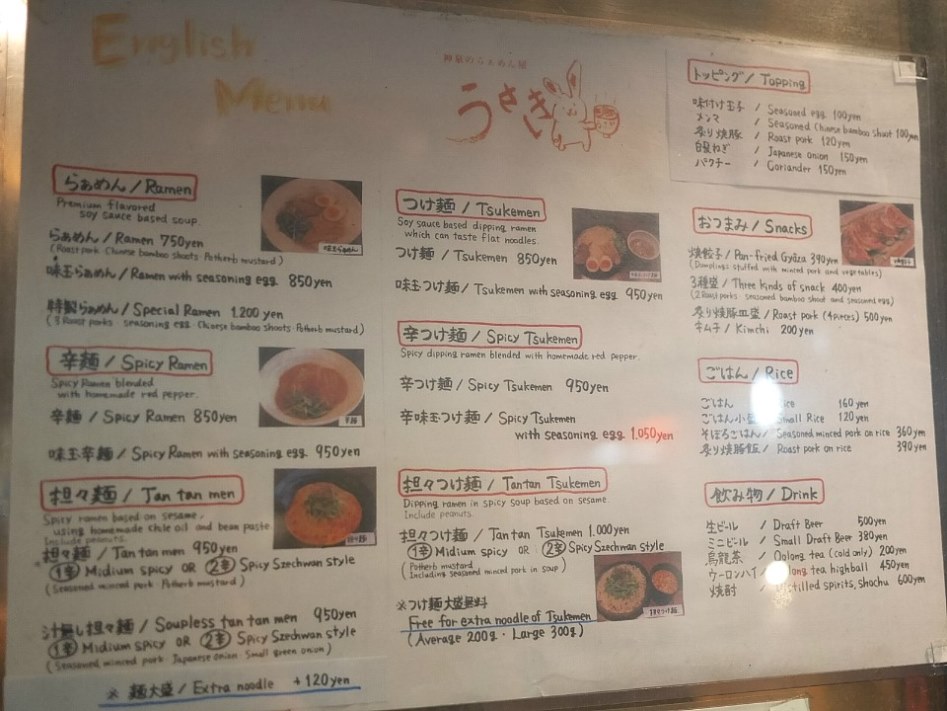 English
Menu
神泉のらぁめん屋
うさぎ
らぁめん / Ramen
Premium flavored
soy sauce based soup.
らぁめん / Ramen 750yen
(Roast pork・Chinese bamboo shoots・Potherb mustard)
味玉らぁめん / Ramen with seasoning egg 850yen
特製らぁめん / Special Ramen 1.200 yen
(3 Roast porks・seasoning egg・Chinese bamboo shoots・Potherb mustard)
辛麺 / Spicy Ramen
Spicy Ramen blended
with homemade red pepper.
辛麺 / Spicy Ramen 850yen
味玉辛麺 / Spicy Ramen with seasoning egg 950yen
担々麺 / Tan tan men
Spicy ramen based on sesame,
using homemade chile oil and bean paste.
Include peanuts.
担々麺 / Tan tan men 950yen
1辛 Midium spicy OR 2辛 Spicy Szechwan style
(Seasoned minced pork・Potherb mustard)
汁無し担々麺 / Soupless tan tan men 950yen
1辛 Midium spicy OR 2辛 Spicy Szechwan style
(Seasoned minced pork・Japanese onion・Small green onion)
※ 麺大盛 / Extra noodle +120yen
つけ麺 / Tsukemen
Soy sauce based dipping ramen
which can taste flat noodles.
つけ麺 / Tsukemen 850yen
味玉つけ麺 / Tsukemen with seasoning egg 950yen
辛つけ麺 / Spicy Tsukemen
Spicy dipping ramen blended with homemade red pepper.
辛つけ麺 / Spicy Tsukemen 950yen
辛味玉つけ麺 / Spicy Tsukemen
with seasoning egg 1.050yen
担々つけ麺 / Tantan Tsukemen
Dipping ramen in spicy soup based on sesame.
Include peanuts.
担々つけ麺 / Tan tan Tsukemen 1.000yen
1辛 Midium spicy OR 2辛 Spicy Szechwan style
(Potherb mustard
Including seasoned minced pork in soup)
※つけ麺大盛無料
Free for extra noodle of Tsukemen
(Average 200g・Large 300g)
トッピング / Topping
味付け玉子 / Seasoned egg 100yen
メンマ / Seasoned Chinese bamboo shoot 100yen
炙り焼豚 / Roast pork 120yen
白髪ねぎ / Japanese onion 150yen
パクチー / Coriander 150yen
おつまみ / Snacks
焼餃子 / Pan-fried Gyoza 390yen
(Dumplings stuffed with minced pork and vegetables)
3種盛 / Three kinds of snack 400yen
(2 Roast porks・seasoned bamboo shoot and seasoned egg)
炙り焼豚皿盛 / Roast pork (4pieces) 500yen
キムチ / Kimchi 200yen
ごはん / Rice
ごはん 160yen
ごはん小 Small Rice 120yen
そぼろごはん / Seasoned minced pork on rice 360yen
炙り焼豚飯 / Roast pork on rice 390yen
飲み物 / Drink
生ビール / Draft Beer 500yen
ミニビール / Small Draft Beer 380yen
烏龍茶 / Oolong tea (cold only) 200yen
ウーロンハイ tea highball 450yen
焼酎 / spirits, shochu 600yen